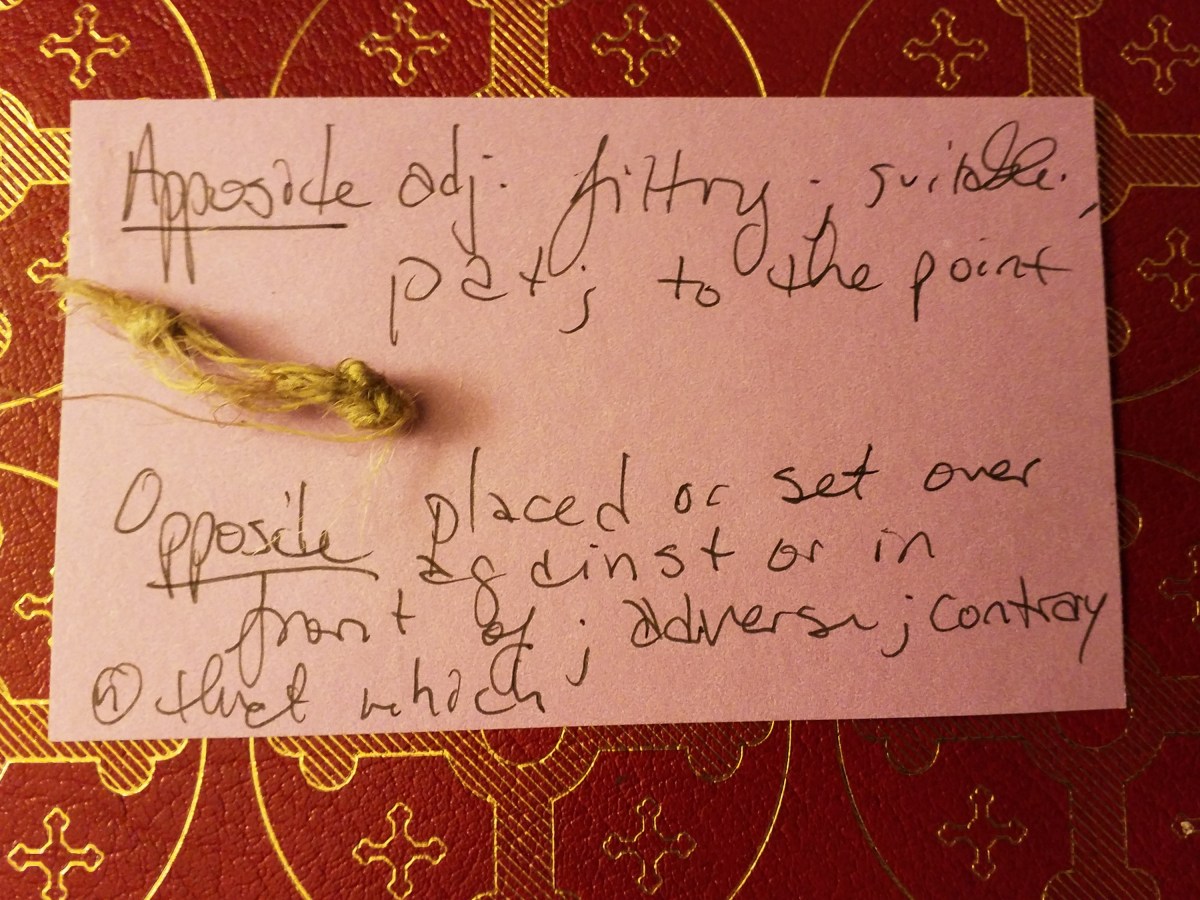 Apposite adj. fitting; suitable.
pat; to the point
Opposite placed or set over
against or in
front of; adverse; contray
n that which